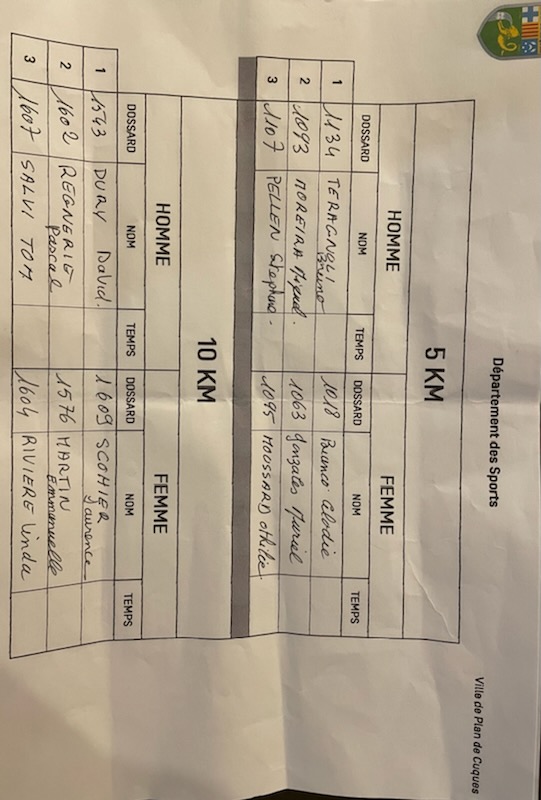 Ville de Plan de Cuques
Département des Sports
5 KM
HOMME FEMME
DOSSARD NOM TEMPS DOSSARD NOM TEMPS
1 1134 TERAGNOLI Bruno 1018 Bianco Elodie
2 1093 MOREIRA Miguel. 1063 Gonzales Muriel
3 1107 PELLEN Stephane. 1095 MOUSSARD Othilie.
10 KM
HOMME FEMME
DOSSARD NOM TEMPS DOSSARD NOM TEMPS
1 1543 DURY David. 1609 SCOHIER Laurence
2 1602 REGNERIE Pascal 1576 MARTIN Emmanuelle
3 1607 SALVI TOM 1604 RIVIERE Linda